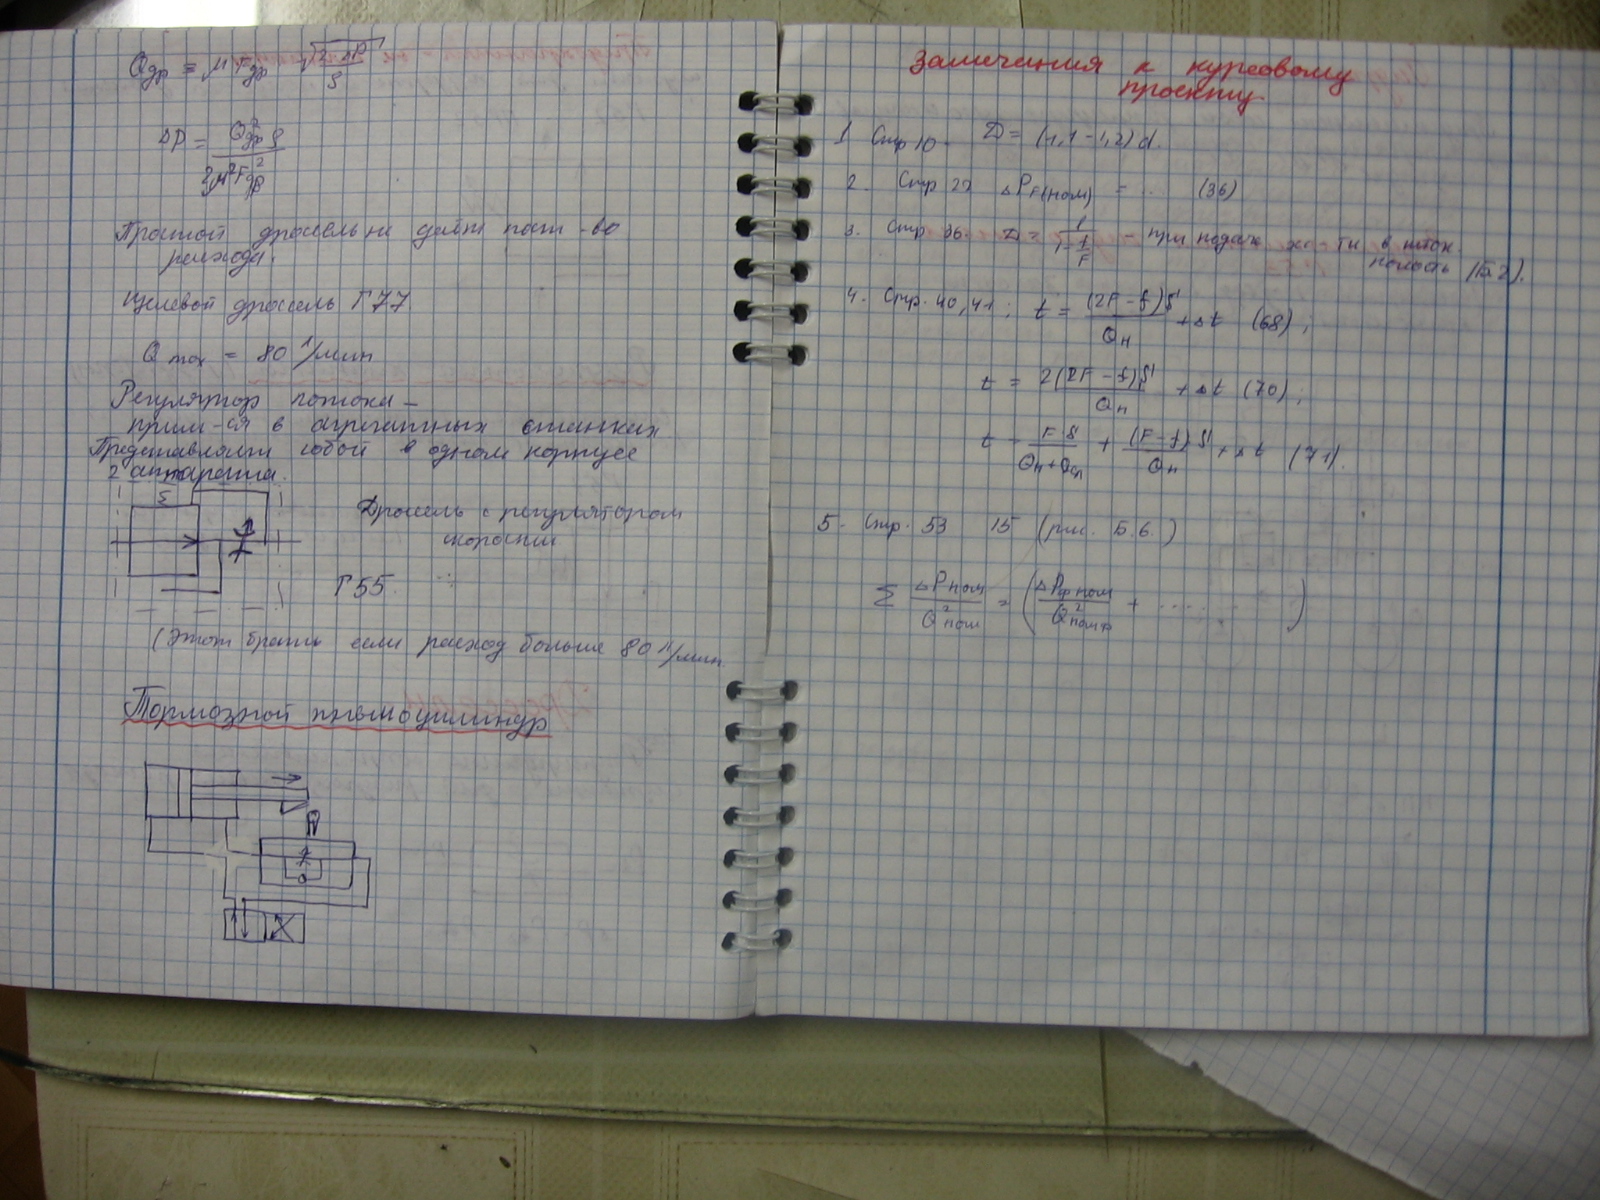 Qдр = μ Fдр √(2·ΔP/ρ)
ΔP = Q²др ρ / 2μ²F²др
Простой дроссель не даёт пост-во
расхода.
Щелевой дроссель Г77.
Q max = 80 л/мин
Регулятор потока –
прим-ся в агрегатных станках.
Представляет собой в одном корпусе
2 аппарата.
Дроссель с регулятором
скорости
Г55.
(Этот брать если расход больше 80 л/мин.
Тормозной пневмоцилиндр
Замечания к курсовому
проекту.
1 Стр 10. D = (1,1 – 1,2) d.
2. Стр 22 ΔPF(ном) = ... (36)
3. Стр 36. = 1 / (1 – f/F) – при подаче ж-сти в шток.
полость
4. Стр. 40, 41; t = (2F – f)S / Qн + Δt (68);
t = 2(2F – f)S / Qн + Δt (70);
t = F S / (Qн + Qсл) + (F – f) S / Qн + Δt (71).
5. Стр. 53 15 (рис. Б.6.)
Σ ΔPном / Q²ном = (ΔPф ном / Q²ном ф + ........ )